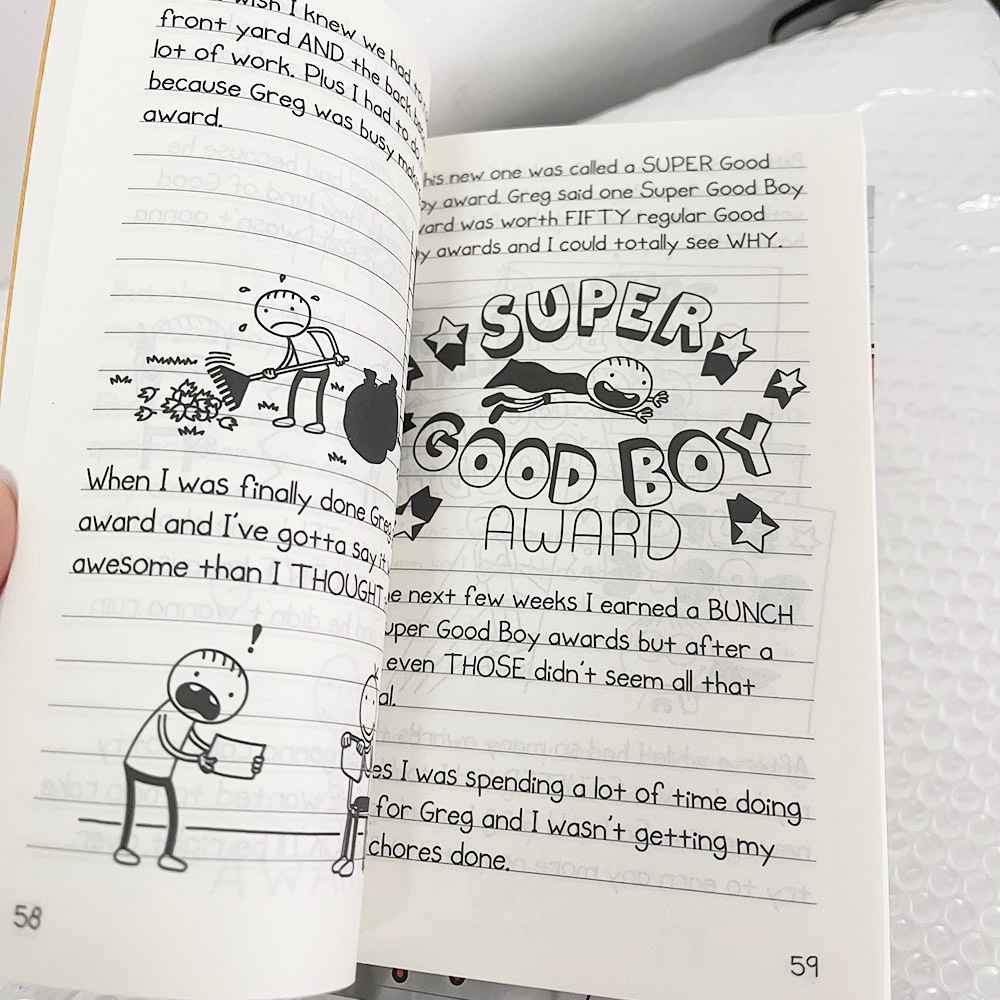 wish I knew we had to
front yard AND the back
lot of work. Plus I had to do
because Greg was busy
award.
When I was finally done Greg
award and I've gotta say it
awesome than I THOUGHT
58
his new one was called a SUPER Good
award. Greg said one Super Good Boy
was worth FIFTY regular Good
awards and I could totally see WHY.
SUPER
GOOD BOY
AWARD
next few weeks I earned a BUNCH
Good Boy awards but after a
even THOSE didn't seem all that
I was spending a lot of time doing
for Greg and I wasn't getting my
chores done.
59